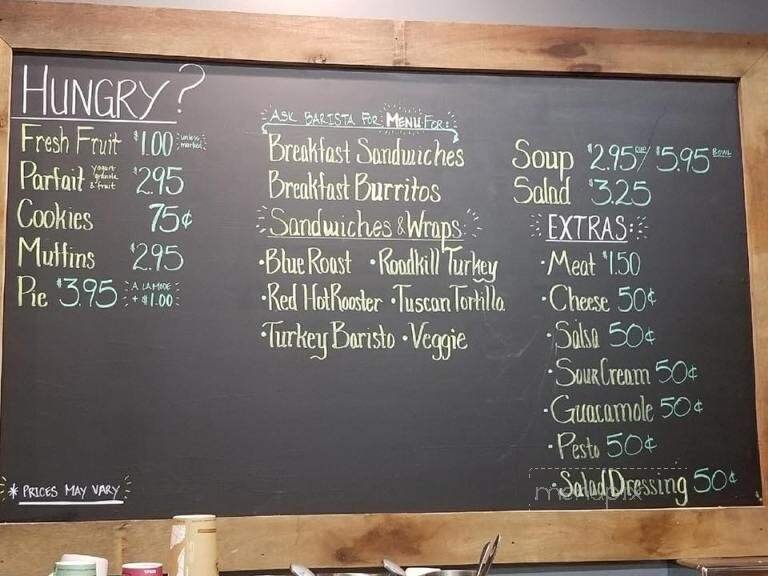 HUNGRY?
Fresh Fruit $1.00 unless marked
Parfait yogurt granola & fruit $2.95
Cookies 75¢
Muffins $2.95
Pie $3.95 A LA MODE + $1.00
* PRICES MAY VARY
ASK BARISTA FOR MENU FOR:
Breakfast Sandwiches
Breakfast Burritos
Sandwiches & Wraps
• Blue Roast • Roadkill Turkey
• Red Hot Rooster • Tuscan Tortilla
• Turkey Baristo • Veggie
Soup $2.95 CUP/ $5.95 BOWL
Salad $3.25
EXTRAS:
• Meat $1.50
• Cheese 50¢
• Salsa 50¢
• Sour Cream 50¢
• Guacamole 50¢
• Pesto 50¢
• Salad Dressing 50¢
menupix